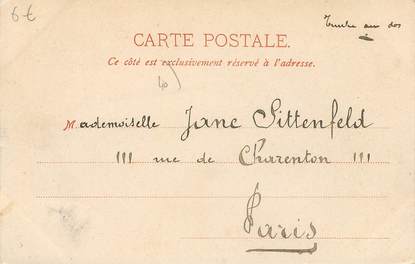 6€
Timbre au dos
CARTE POSTALE.
Ce côté est exclusivement réservé à l'adresse.
Mademoiselle Jane Sittenfeld
111 rue de Charenton 111
Paris